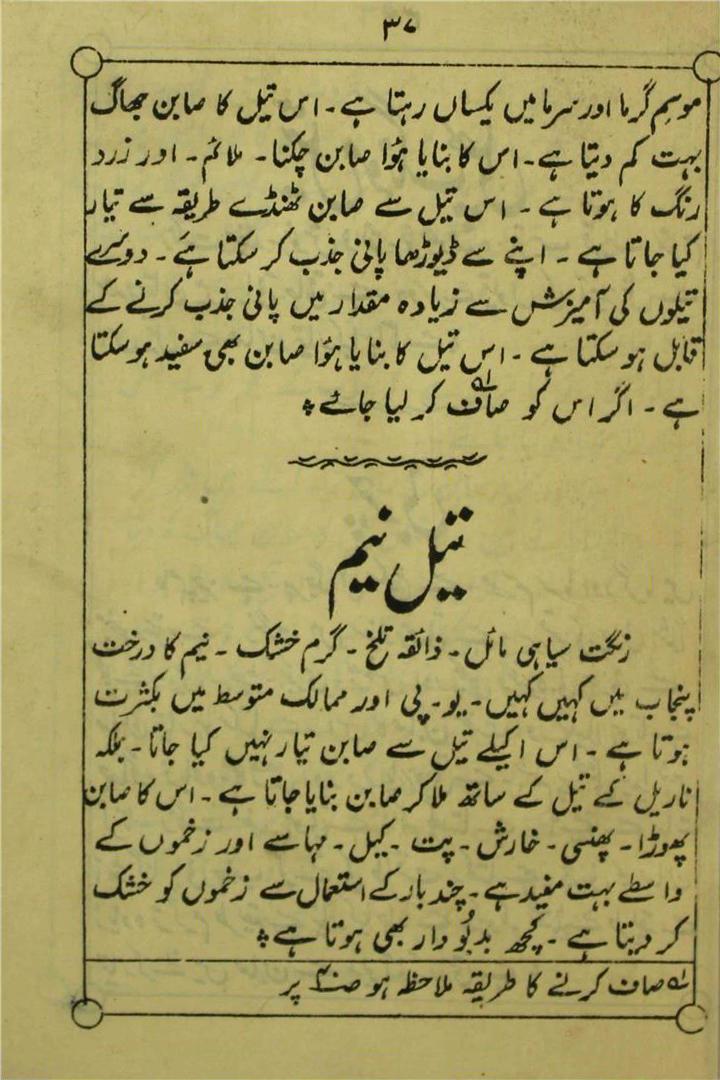 ۳۷
موسم گرما اور سرما میں یکساں رہتا ہے۔ اس تیل کا صابن جھاگ
بہت کم دیتا ہے۔ اس کا بنایا ہؤا صابن چکنا۔ ملائم۔ اور زرد
رنگ کا ہوتا ہے۔ اس تیل سے صابن ٹھنڈے طریقہ سے تیار
کیا جاتا ہے۔ اپنے سے ڈیوڑھا پانی جذب کر سکتا ہے۔ دوسرے
تیلوں کی آمیزش سے زیادہ مقدار میں پانی جذب کرنے کے
قابل ہو سکتا ہے۔ اس تیل کا بنایا ہؤا صابن بھی سفید ہو سکتا
ہے۔ اگر اس کو صاف کر لیا جائے ؞
تیل نیم
رنگت سیاہی مائل۔ ذائقہ تلخ۔ گرم خشک۔ نیم کا درخت
پنجاب میں کہیں کہیں۔ یو۔ پی اور ممالک متوسط میں بکثرت
ہوتا ہے۔ اس اکیلے تیل سے صابن تیار نہیں کیا جاتا۔ بلکہ
ناریل کے تیل کے ساتھ ملا کر صابن بنایا جاتا ہے۔ اس کا صابن
پھوڑا۔ پھنسی۔ خارش۔ پت۔ کیل۔ مہاسے اور زخموں کے
واسطے بہت مفید ہے۔ چند بار کے استعمال سے زخموں کو خشک
کر دیتا ہے۔ کچھ بدبُو دار بھی ہوتا ہے ؞
لہ صاف کرنے کا طریقہ ملاحظہ ہو پر